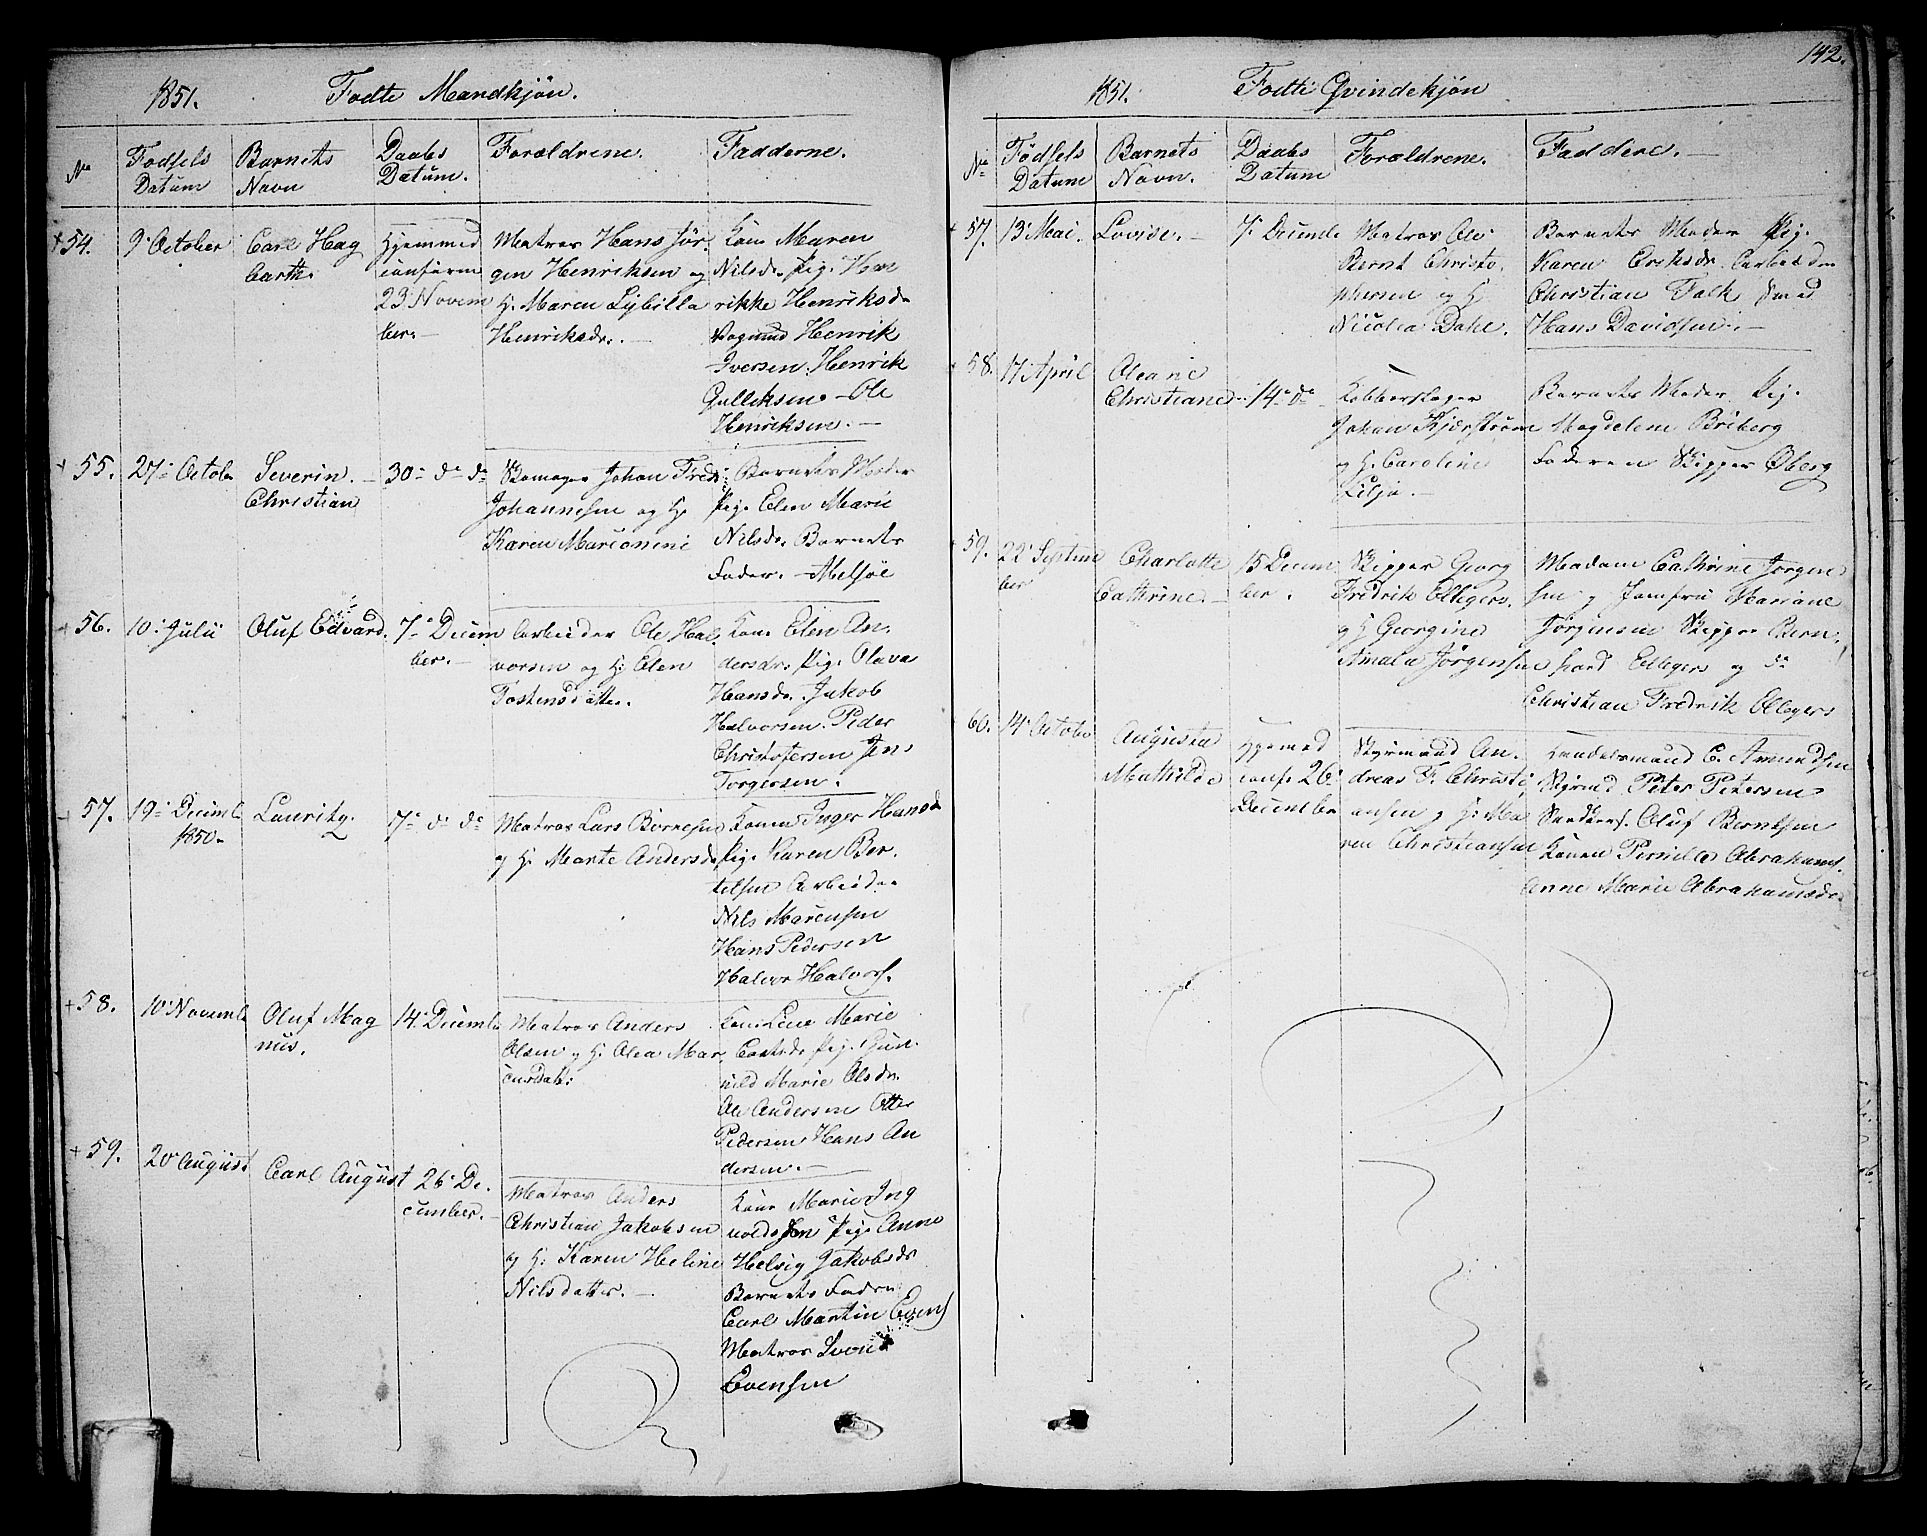 1851. Fødte Mandkjøn.
No Fødsels Datum Barnets Navn Daabs Datum. Forældrene. Fadderne.
+ 54. 9de October Carl Hag
barth.
Hjemmed
confirm
23 Novem
ber.
Matros Hans Jør
gen Henriksen og
h. Maren Sybilla
Henriksdr.
Kone Maren
Nilsdr Pig. Hen
rikke Henriksdr
Henrik
Iversen. Henrik
Gulliksen. Ole
Henriksen.
+ 55. 27de Octobr Severin
Christian
30te do do
Johan Fredr
Johannesen og h.
Karen Marionini
Barnets Moder
Pig. Elen Marie
Nilsdr. Barnets
Fader. Melsøe
+ 56. 10de Julii Oluf Edvard. 7de Decem
ber.
Arbeider Ole Hal
vorsen og h. Elen
Tostensdatter.
Kone Elen An
dersdr. Pig. Olava
Hansdr. Jakob
Halvorsen. Peder
Christofersen Jens
Torgersen.
57. 19de Decemb
1850.
Lauritz. 7de do do
Matros Lars Børresen
og h. Marte Andersdr
Konen Inger Hansd
Pig. Karen Ber
telsen Arbeider
Nils Marensen
Hans Pedersen
Halvor Halvors.
+ 58. 10de Novemb Oluf Mag
nus.
14de Decemb
Matros Anders
Olsen og h. Olea Mar
cusdatt:
Kon. Lene Marie
Pig. Gun
nild Marie Olsdr.
Ole Andersen Otter
Pedersen Hans An
dersen.
+ 59. 20de August Carl August 26de De
cember.
Matros Anders
Christian Jakobsen
og h. Karen Heline
Nilsdatter.
Kone Marie Ing
voldsen Pig. Anne
Helvig Jakobsdr
Barnets Fader
Carl Martin Evens
Matros Svend
Evensen
142.
1851. Fødte Qvindekjøn
No Fødsels Datum Barnets Navn. Daabs Datum Forældrene. Faddere.
57. 13de Mai. Lovise. 7de Decemb
Matros Ole
Bernt Christo
phersen og h.
Nicolea Dahl.
Barnets Moder Pig.
Karen Eriksdr. Arbeider
Christian Falk Smed
Hans Davidsen.
58. 17de April Oleane
Christiane
14de do
Kobberslager
Johan Kjerstrøm
og h. Caroline
Lilja.
Barnets Moder Pig.
Magdelene Briberg
Faderen Skipper Øberg
59. 22de Septem
ber
Charlotte
Cathrine.
15 Decem
ber.
Skipper Georg
Fredrik Ellegers.
og h. Georgine
Amalia Jørgensen
Madam Cathrine Jørgen
sen og Jomfru Mariane
Jørgensen Skipper Bern
hard Ellegers og do
Christian Fredrik Ellegers
60. 14de Octobr Augusta
Mathilde
Hjemmed
conf. 26de
December
Styrmand An
dreas F. Christi
ansen og h. Ma
ren Christiansen
Handelsmand C. Amundsen
Styrmd Peter Petersen
Oluf Berntsen
Konen Pernille Abrahams.
Anne Marie Abrahamsdr.